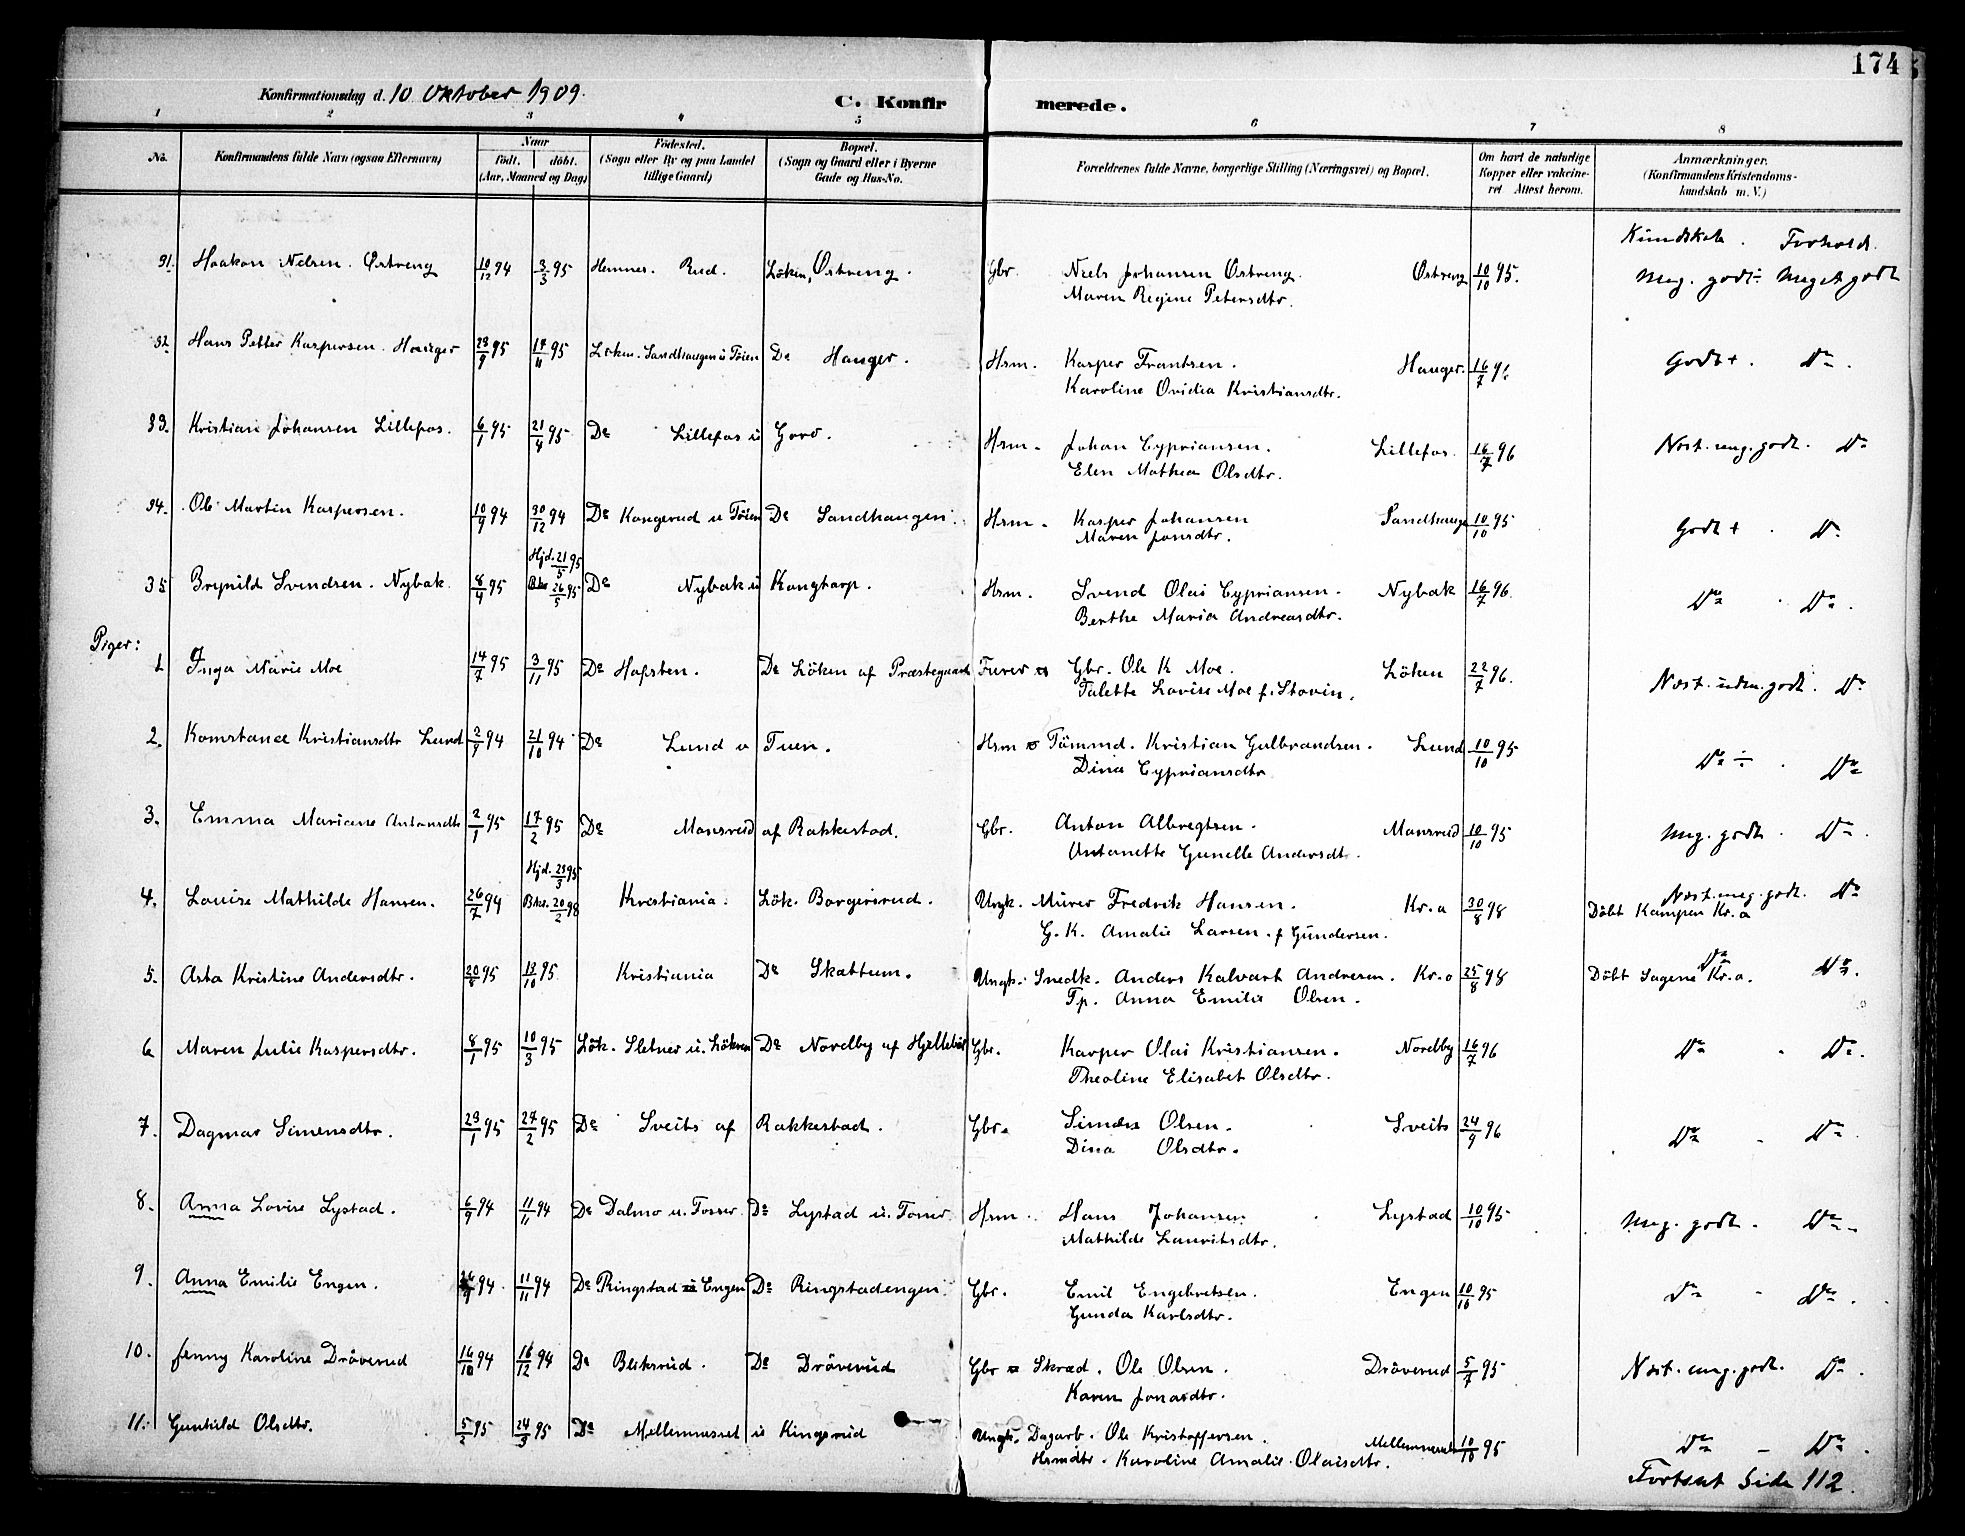 174
Konfirmationsdag d. 10 Oktober 1909.
C. Konfirmerede.
1 2 3 4 5 6 7 8
No. Konfirmandens fulde Navn (ogsaa Efternavn) Naar født. døbt. (Aar, Maaned og Dag) Fødested. (Sogn eller By og paa Landet tillige Gaard) Bopæl. (Sogn og Gaard eller i Byerne Gade og Hus-No. Forældrenes fulde Navne, borgerlige Stilling (Næringsvei) og Bopæl. Om havt de naturlige Kopper eller vakcineret Attest herom. Anmærkninger. (Konfirmandens Kristendomskundskab m. V.)
Kundskab. Forhold.
31. Haakon Nelsen. Østreng 10/12 94 3/3 95 Hemnes. Rud. Löken, Østreng. Gbr. Niels Johansen Østreng. Østreng 10/10 95. Meg. godt ÷ Meget godt
Maren Regine Petersdtr.
32. Hans Petter Kaspersen. Hauger 23/9 95 17/11 95 Löken. Sandhaugen u Töien Do Hauger. Hrm. Kasper Frantsen. Hauger. 16/7 96 Godt +. Do.
Karoline Ovidia Kristiansdtr.
33. Kristian Johansen Lillefos. 6/1 95 21/4 95 Do Lillefos u Hrm. Johan Cypriansen. Lillefos. 16/7 96 Næst. meg. godt. Do
Elen Mathea Olsdtr.
34. Ole Martin Kaspersen. 10/9 94 30/12 94 Do Kangerud u Töien Do Sandhaugen. Hrm. Kasper Johansen Sandhaugen 10/10 95 Godt + Do
Maren Jonsdtr.
35 Brynild Svendsen. Nybak. 8/4 95 Hjd. 21/5 95 26/5 95 Do Nybak u Kragtorp. Hrm. Svend Olai Cypriansen. Nybak 16/7 96. Do Do.
Berthe Maria Andreasdtr.
Piger:
1 Inga Marie Moe 14/7 95 3/11 95 Do Hofsten. Do Löken af Præstegaard Furer Gbr. Ole K Moe. Löken 22/7 96. Næst. godt. Do
Talette Lovise Moe f. Stovin.
2. Konstance Kristiansdtr Lund 2/9 94 21/10 94 Do Lund u Tuen. Hrm Tömmd. Kristian Gulbrandsen. Lund 10/10 95 Do ÷. Do
Dina Cypriansdtr
3. Emma Mariane Antonsdtr 2/1 95 17/2 95 Do Monsrud af Rakkestad. Gbr. Anton Albregtsen. Monsrud 10/10 95 Meg. godt. Do.
Antonette Gunelle Andersdtr.
4. Louise Mathilde Hansen. 26/7 94 Hjd. 29/3 95 20/2 98 Kristiania. Lök. Borgersrud. Ungk. Murer Fredrik Hansen. Kr.a 30/8 98 Næst. meg. godt. Do
G. K. Amalie Larsen. f Gundersen. Döbt Kampen Kr.a
5. Asta Kristine Andersdtr. 20/8 95 13/10 95 Kristiania Do Skattum. Ungk. Snedk. Anders Kalvart Andresen. Kr.a 25/8 98 Döbt Sagene Kr.a. Do Do.
Tp. Anna Emilie Olsen.
6 Maren Julie Kaspersdtr. 8/1 95 10/3 95 Lök. Sletner u. Löken Do Nordby af Gbr. Kasper Olai Kristiansen. Nordby 16/7 96 Do Do.
Theoline Elisabet Olsdtr.
7. Dagmar Simensdtr. 23/1 95 24/2 95 Do Sveits af Rakkestad. Gbr. Simen Olsen. Sveits 24/9 96 Do Do.
Dina Olsdtr.
8. Anna Lovise Lystad. 6/9 94 11/11 94 Do Dalmo u. Toner. Do Lystad u. Toner. Hrm. Hans Johansen Lystad 10/10 95 Meg. godt. Do
Mathilde Lauritsdtr.
9. Anna Emilie Engen. 94 11/11 94 Do Ringstad Engen Do Ringstadengen. Gbr. Emil Engebretsen. Engen 10/10 95 Do Do.
Gunda Karlsdtr.
10. Jenny Karoline Dröverud 14/10 94 16/12 94 Do Bliksrud. Do Dröverud Gbr Skræd. Ole Olsen. Dröverud 5/7 95 Næst. meg. godt. Do.
Karen Jonasdtr.
11. Gunhild Olsdtr. 5/2 95 24/3 95 Do Mellemneset u Kingsrud Ungk. Dagarb. Ole Kristoffersen. Mellemneset 10/10 95 Do Do.
Hrmdtr. Karoline Amalie Olaisdtr.
Fortsat Side 112.